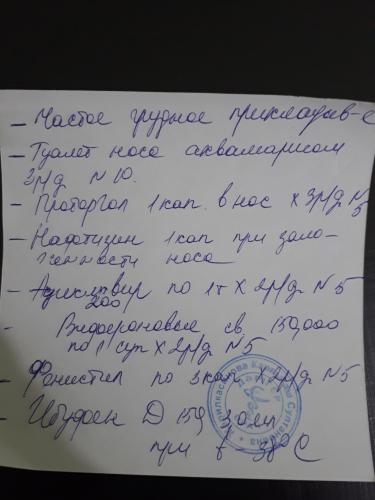 – Частое грудное прикладыв-е
– Туалет носа аквамарисом
3р/д N 10.
– Протаргол 1 кап. в нос х 3р/д N 5
– Нафтизин 1 кап при зало-
женности носа
– по 1т х 2р/д N 5
200
– Вифероновые св 150,000
по 1 суп х 2р/д N 5
– Фенистил по 3кап х 2р/д N 5
– Ибуфен Д
при t 38°C